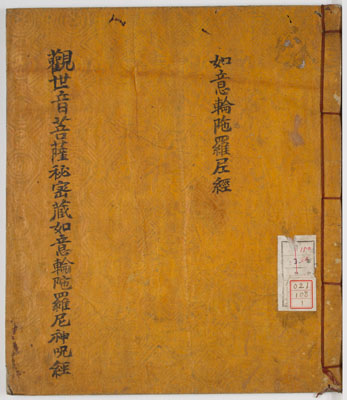 如意輪陁羅尼經
觀世音菩薩秘密藏如意輪陁羅尼神呪經
021
1